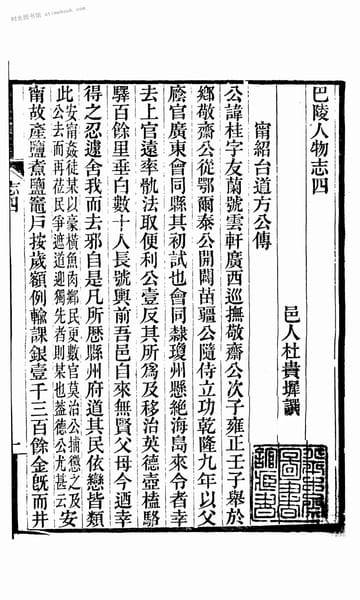 时光图书馆 atimebook.com
巴陵人物志四
邑人杜貴墀譔
甯紹台道方公傳
公諱桂字友蘭號雲軒廣西巡撫敬齋公次子雍正壬子舉於
鄉敬齋公從鄂爾泰公開闢苗疆公隨侍立功乾隆九年以父
廕官廣東會同縣其初試也會同隸瓊州縣絕海島來令者率
去上官遠率骫法取便利公壹反其所爲及移治英德壺榼駱
驛百餘里垂白數十人長號輿前吾邑自來無賢父母今迺幸
得之忍遽舍我而去邪自是凡所歷縣州府道其民依戀皆類
此安甯姦徒某以豪橫魚肉鄉民更數官莫治公捕懲之及
公去而再莅民爭遮道迎獨先者則某也蓋德公尤甚云安
甯故產鹽煮鹽竈戶按歲額例輸課銀壹千三百餘金旣而井
志四
一